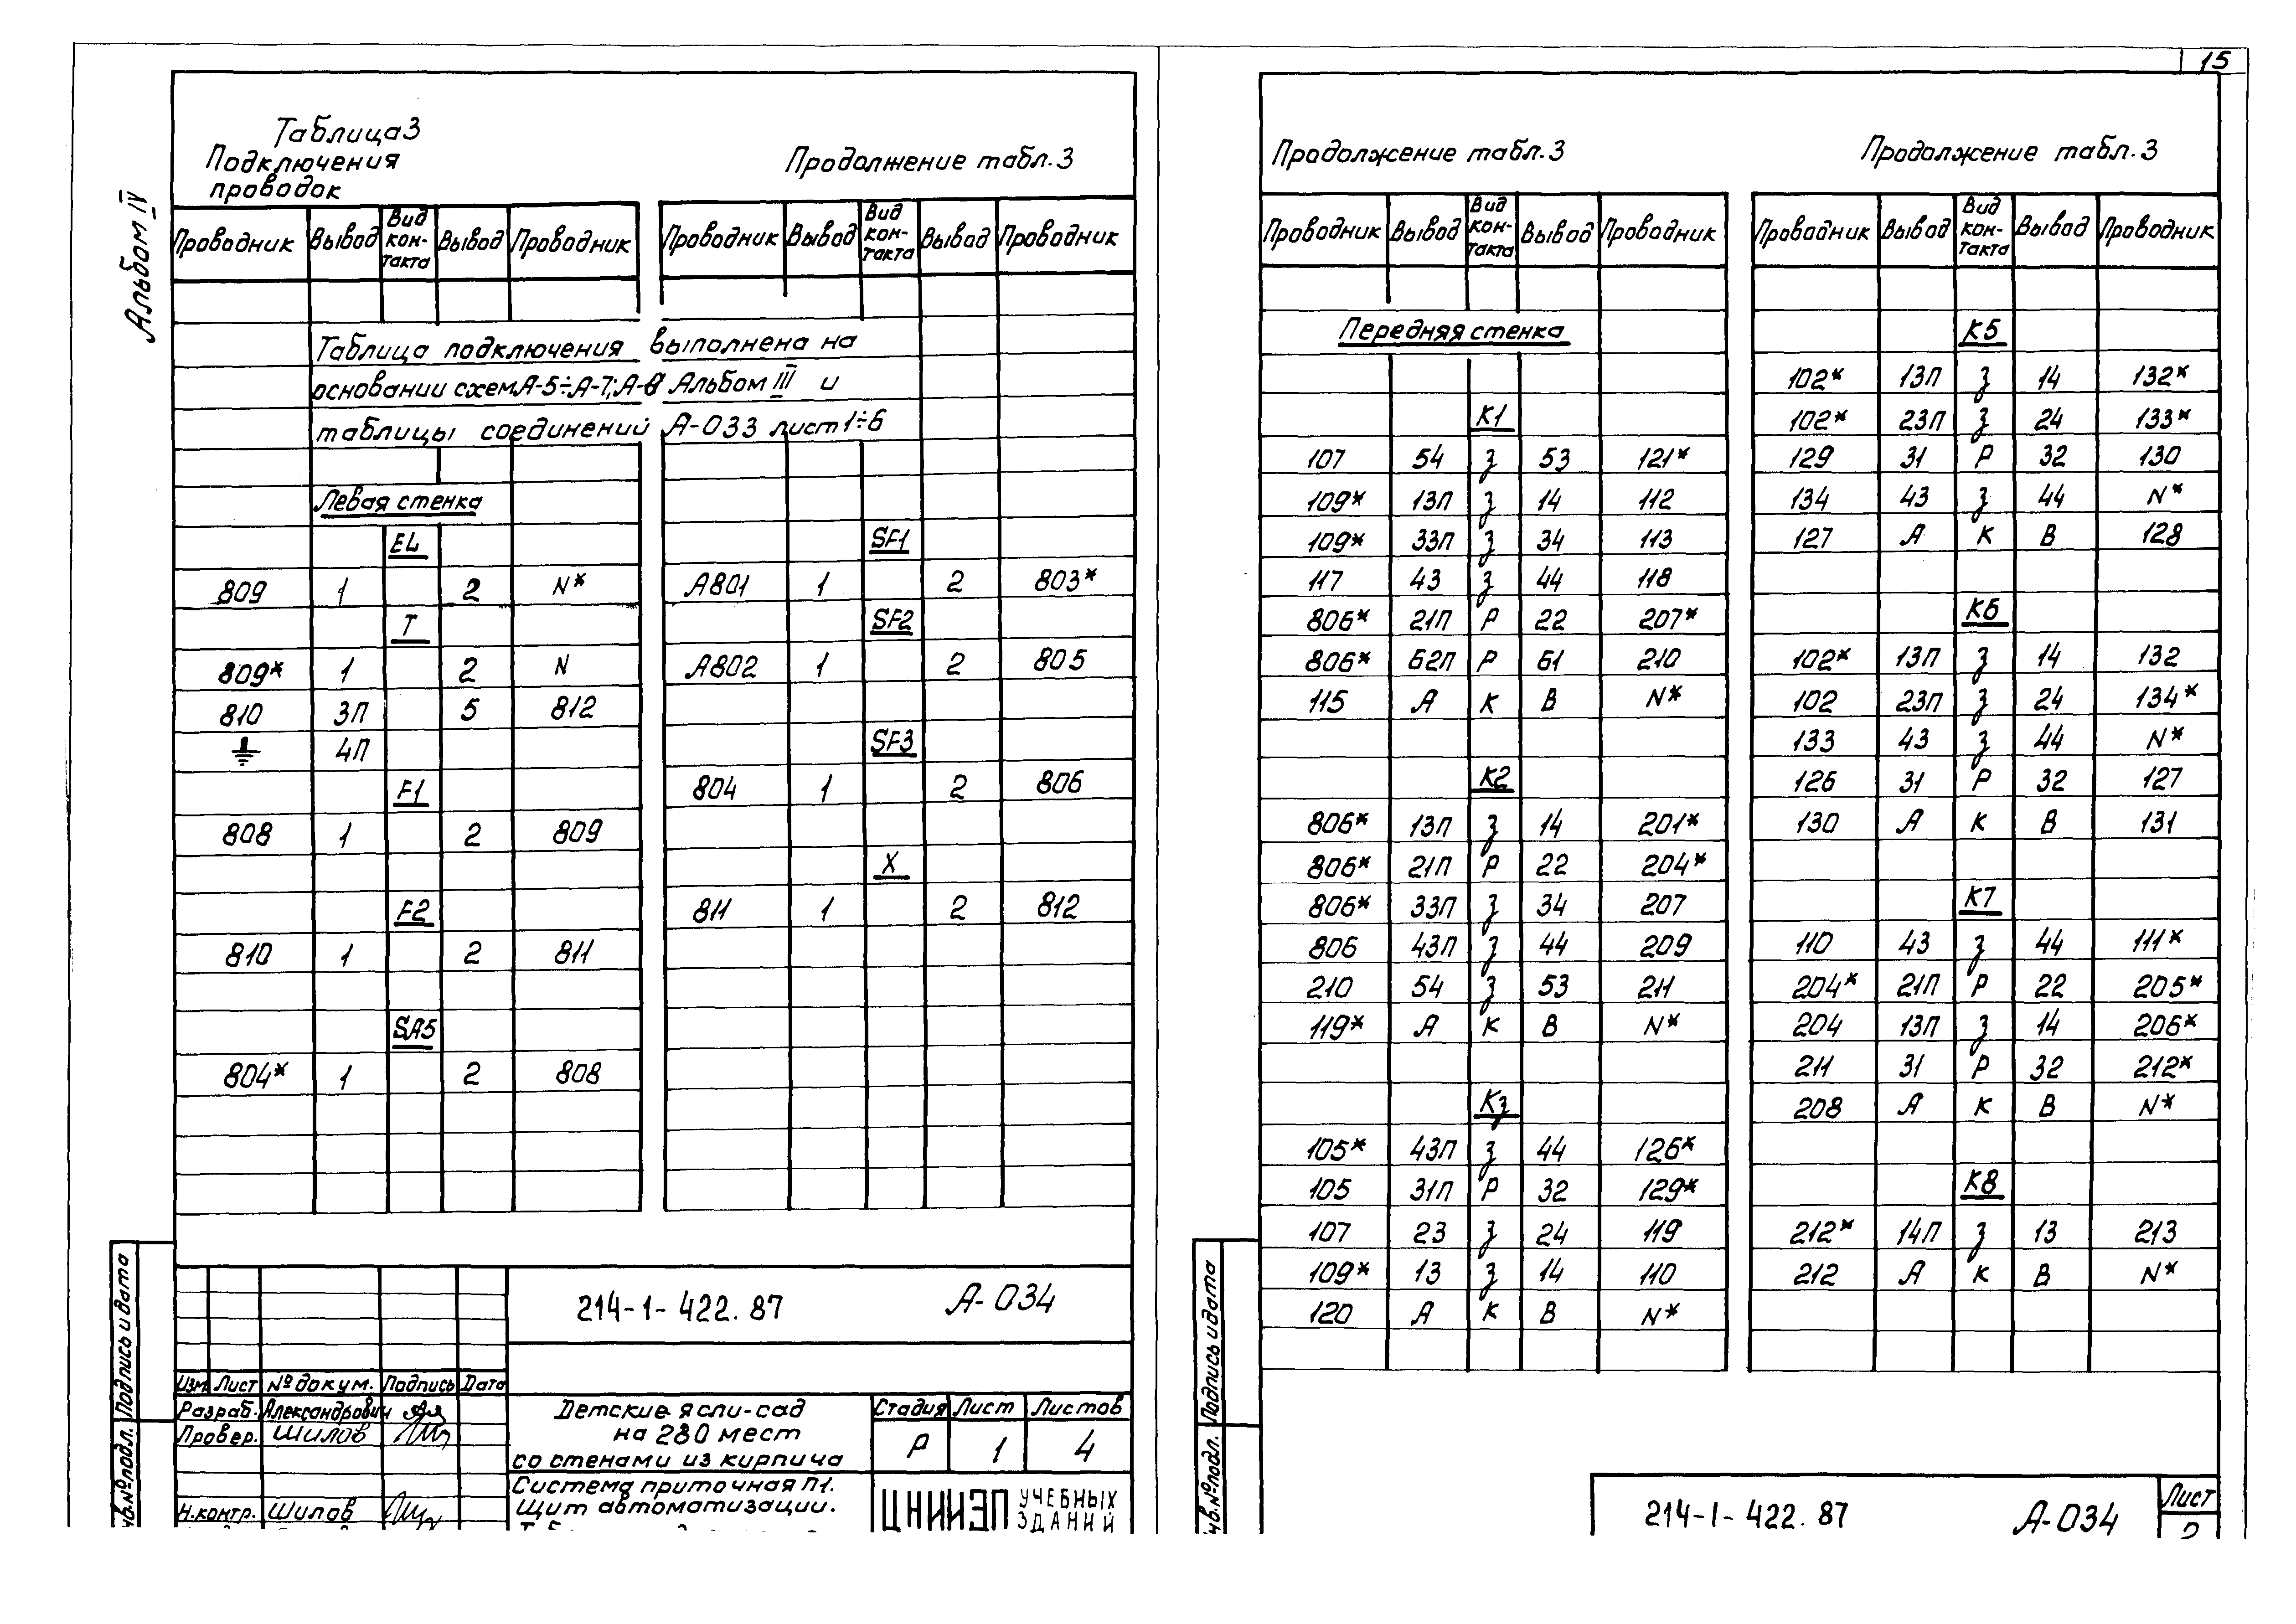 15
Альбом IV
Таблица 3
Подключения
проводок
Продолжение табл.3
Проводник Вывод Вид контакта Вывод Проводник
Проводник Вывод Вид контакта Вывод Проводник
Таблица подключения выполнена на
основании схем А-5÷А-7; А-8 Альбом III и
таблицы соединений А-033 лист 1÷6
Левая стенка
EL
809 1 2 N*
T
809* 1 2 N
810 3П 5 812
4П
F1
808 1 2 809
F2
810 1 2 811
SA5
804* 1 2 808
SF1
А801 1 2 803*
SF2
А802 1 2 805
SF3
804 1 2 806
X
811 1 2 812
214-1-422.87 А-034
Изм Лист № докум. Подпись Дата
Разраб. Александрович
Провер. Шилов
Н.контр. Шилов
Детские ясли-сад
на 280 мест
со стенами из кирпича
Стадия Лист Листов
Р 1 4
Система приточная П1.
Щит автоматизации.
ЦНИИЭП УЧЕБНЫХ
ЗДАНИЙ
Подпись и дата
Инв.№ подл.
Продолжение табл.3
Проводник Вывод Вид контакта Вывод Проводник
Передняя стенка
К1
107 54 З 53 121*
109* 13П З 14 112
109* 33П З 34 113
117 43 З 44 118
806* 21П Р 22 207*
806* 62П Р 61 210
115 А К В N*
К2
806* 13П З 14 201*
806* 21П Р 22 204*
806* 33П З 34 207
806 43П З 44 209
210 54 З 53 211
119* А К В N*
К3
105* 43П З 44 126*
105 31П Р 32 129*
107 23 З 24 119
109* 13 З 14 110
120 А К В N*
Продолжение табл.3
Проводник Вывод Вид контакта Вывод Проводник
К5
102* 13П З 14 132*
102* 23П З 24 133*
129 31 Р 32 130
134 43 З 44 N*
127 А К В 128
К6
102* 13П З 14 132
102 23П З 24 134*
133 43 З 44 N*
126 31 Р 32 127
130 А К В 131
К7
110 43 З 44 111*
204* 21П Р 22 205*
204 13П З 14 206*
211 31 Р 32 212*
208 А К В N*
К8
212* 14П З 13 213
212 А К В N*
Подпись и дата
Инв.№ подл.
214-1-422.87 А-034
Лист
2